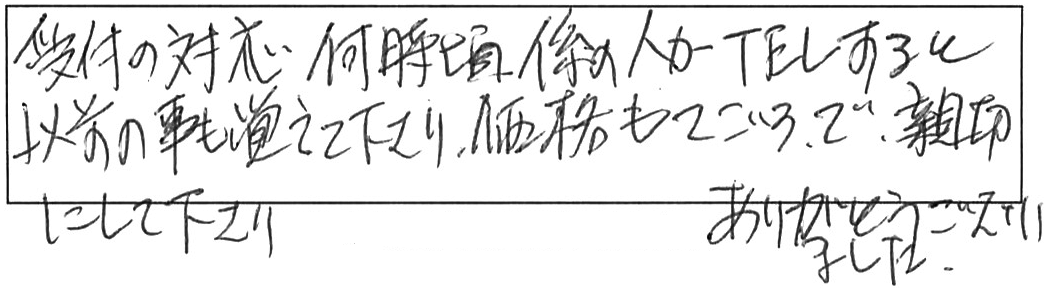 受付の対応 何時頃 係の人がTELしますと
以前の事も覚えて下さり、価格もてごろ、で、親切
にして下さり
ありがとうございました.